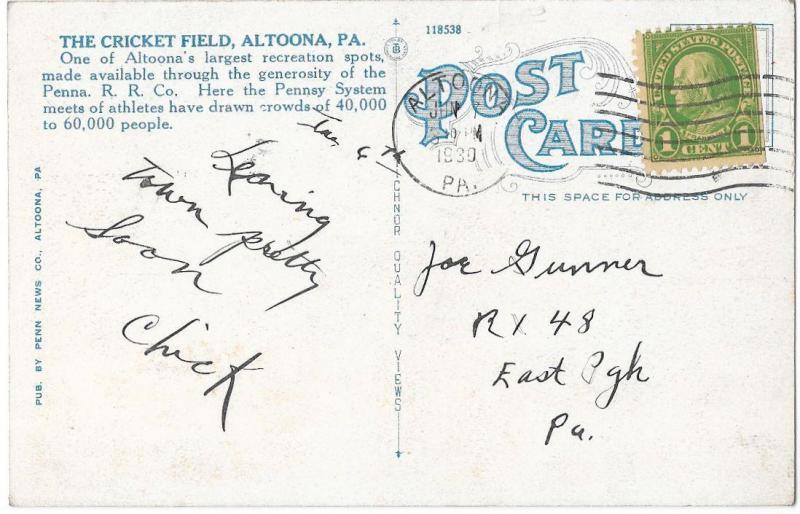 THE CRICKET FIELD, ALTOONA, PA.
One of Altoona's largest recreation spots,
made available through the generosity of the
Penna. R. R. Co. Here the Pennsy System
meets of athletes have drawn crowds of 40,000
to 60,000 people.
PUB. BY PENN NEWS CO., ALTOONA, PA
6th
Leaving
town pretty
soon
Chick
TICHNOR QUALITY VIEWS
118538
POST
CARD
ALTOONA
1930
PA.
UNITED STATES POSTAGE
FRANKLIN
1 CENT 1
THIS SPACE FOR ADDRESS ONLY
Joe Gunner
RX 48
East Pgh
Pa.